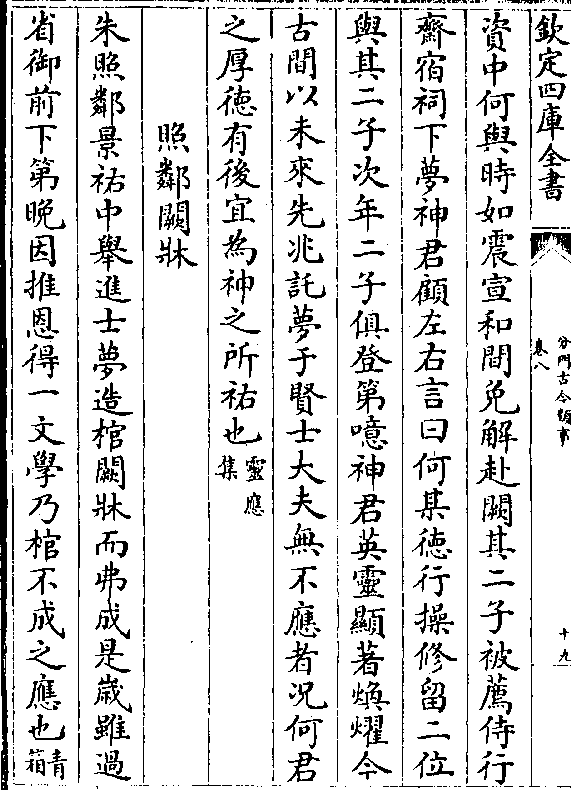 欽定四庫全書
分門古今類事
卷八
十九
資中何與時如震宣和間免解赴闕其二子被薦侍行
齋宿祠下夢神君顧左右言曰何某徳行操修留二位
與其二子次年二子俱登第噫神君英靈顯著煥耀今
古間以未來先兆託夢于賢士大夫無不應者况何君
之厚徳有後宜為神之所祐也靈應集
照鄰闕牀
朱照鄰景祐中舉進士夢造棺闕牀而弗成是歲雖過
省御前下第晚因推恩得一文學乃棺不成之應也青箱